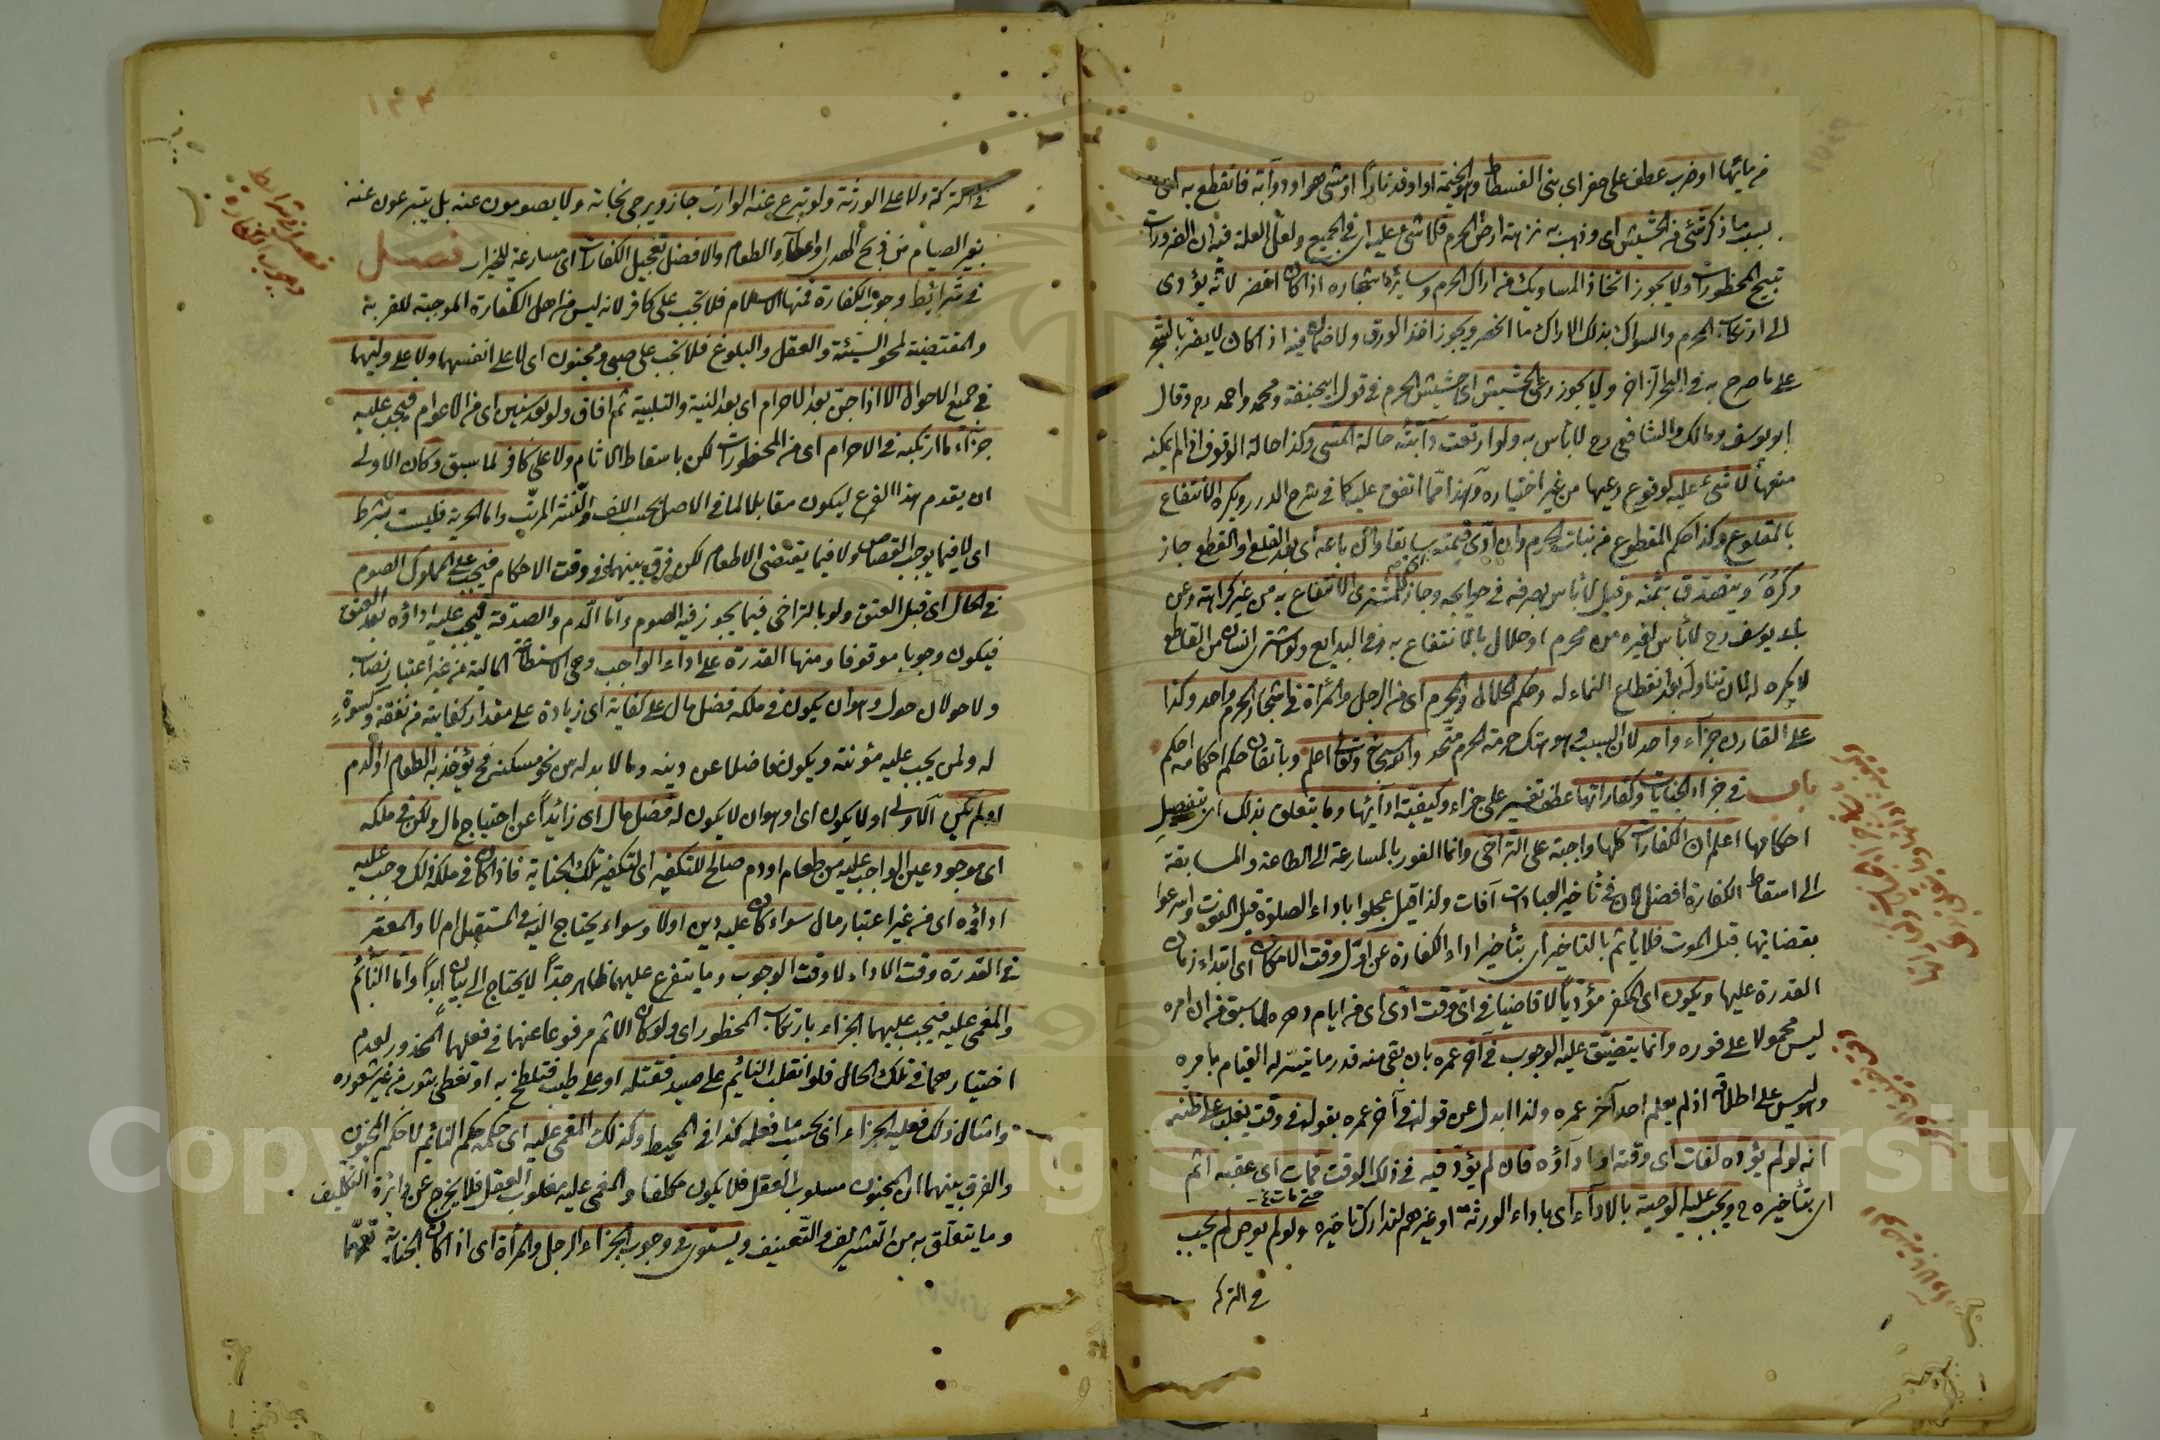 من مائها او ضرب عطف على حفر اى بنى الفسطاط وهو الخيمة او اوقد نارا او مشى هو او دوابه فانقطع به اى
بسبب ما ذكر شئ من الحشيش اى وذهب به نزهة ارض الحرم فلا شئ عليه اى فى الجميع ولعل العلة فيه ان الضرورات
تبيح المحظورات ولا يجوز اتخاذ المساويك من اراك الحرم وسائر اشجاره اذا كان اخضر لانه يؤدى
الى ارتكاب الحرم والسواك بذلك الاراك ما الخضر ويجوز اخذ الورق ولا ضمان فيه اذا كان لا يضر بالشجر
على ما صرح به فى البحر الزاخر ولا يجوز رعى الحشيش اى حشيش الحرم فى قول ابى حنيفة ومحمد واحمد رح وقال
ابو يوسف ومالك والشافعى رح لا بأس به ولو ارتعت دابته حالة المشى وكذا حالة الوقوف اذا لم يمكنه
منعها لا شئ عليه لوقوع رعيها من غير اختياره وهذا مما اتفق عليه كما فى شرح الدرر ويكره الانتفاع
بالمقلوع وكذا حكم المقطوع من نبات الحرم وان ادى قيمته سابقا وان باعه اى بعد القلع او القطع جاز
وكره ويتصدق بثمنه وقيل لا بأس بصرفه فى حوايجه وجاز للمشترى الانتفاع به من غير كراهة وعن
ابى يوسف رح لا بأس لغيره من محرم او حلال بالانتفاع به وفى البدايع ولو اشترى انسان من القاطع
لا يكره له لان تناوله بعد انقطاع النماء له وحكم الحلال والمحرم اى من الرجل والمرأة فى اشجار الحرم واحد وكذا
على القارن جزاء واحد لان السبب وهو هتك حرمة الحرم متحد والله سبحانه وتعالى اعلم وباتقان حكم احكامه احكم
باب فى جزاء الجنايات وكفاراتها عطف تفسير على جزاء وكيفية ادائها وما يتعلق بذلك اى بتفصيل
احكامها اعلم ان الكفارات كلها واجبة على التراخى وانما الفور بالمسارعة الى الطاعة والمسابقة
الى اسقاط الكفارة افضل لان فى تأخير العبادات آفات ولذا قيل عجلوا باداء الصلوة قبل الفوت واسرعوا
بقضائها قبل الموت فلا يأثم بالتأخير اى بتأخير اداء الكفارة عن اول وقت الامكان اى ابتداء زمان
القدرة عليها ويكون اى المكفر مؤديا لا قاضيا فى اى وقت ادى اى من ايام دهره لما سبق من ان امره
ليس محمولا على فوره وانما يتضيق عليه الوجوب فى آخر عمره بان بقى منه قدر ما يتيسر له القيام بامره
وليس على اطلاقه اذ لم يعلم احد آخر عمره ولذا ابدل عن قوله فى آخر عمره بقوله فى وقت يغلب على ظنه
انه لو لم يؤده لفات اى وقته او اداؤه فان لم يؤد فيه فى ذلك الوقت فمات اى عقبه اثم
اى بتأخيره ويجب عليه الوصية بالاداء اى باداء الورثة او غيرهم لتدارك تأخيره ولو لم يوص لم يجب
فى التركة
١٣٤
فى التركة ولا على الورثة ولو تبرع عنه الوارث جاز ويرجى نجاته ولا يصومون عنه بل يتبرعون عنه
بغير الصيام من ذبح الهدى او اعطاء الطعام والافضل تعجيل الكفارات اى مسارعة للخيرات فصل
فى شرائط وجوب الكفارة فمنها الاسلام فلا تجب على كافر لانه ليس من اهل الكفارة الموجبة للقربة
والمقتضية لمحو السيئة والعقل والبلوغ فلا تجب على صبى ومجنون اى لا على انفسهما ولا على وليهما
فى جميع الاحوال الا اذا جن بعد الاحرام اى بعد النية والتلبية ثم افاق ولو بعد سنين اى من الاعوام فيجب عليه
جزاء ما ارتكبه فى الاحرام اى من المحظورات لكن باسقاط الآثام ولا على كافر لما سبق وكان الاولى
ان يقدم هذا الفرع ليكون مقابلا لما فى الاصل بحسب اللف والنشر المرتب واما الحرية فليست بشرط
اى لا فيما يوجب القصاص ولا فيما يقتضى الاطعام لكن فرق بينهما فى وقت الاحكام فيجب على المملوك الصوم
فى الحال اى قبل العتق ولو بالتراخى فيما يجوز فيه الصوم واما الدم والصدقة فيجب عليه اداؤه بعد العتق
فيكون وجوبا موقوفا ومنها القدرة على اداء الواجب وهى الاستطاعة المالية من غير اعتبار نصاب
ولا حولان حول وهو ان يكون فى ملكه فضل مال على كفايته اى زيادة على مقدار كفايته من نفقة وكسوة
له ولمن يجب عليه مؤنته ويكون فاضلا عن دينه وما لا بد له من نحو مسكنه فح يؤخذ به الطعام او الدم
او لم يكن الاولى او لا يكون اى او هو ان لا يكون له فضل مال اى زائدا عن احتياج مال ولكن فى ملكه
اى موجود عين الواجب عليه من طعام او دم صالح للتكفير اى لتكفير تلك الجناية فاذا كان فى ملكه ذلك وجب عليه
اداؤه اى من غير اعتبار مال سواء كان عليه دين او لا وسواء يحتاج اليه فى المستقبل ام لا والمعتبر
فى القدرة وقت الاداء لا وقت الوجوب وما يتفرع عليهما ظاهر جدا لا يحتاج الى بيان ابدا واما النائم
والمغمى عليه فيجب عليهما الجزاء بارتكاب المحظور اى ولو كان الاثم مرفوعا عنهما فى فعلهما المحذور لعدم
اختيارهما فى تلك الحال فلو انقلب النائم على صيد فقتله او على طيب فتلطخ به او تغطى بثوب من غير شعوره
وامثال ذلك فعليه الجزاء اى بحسب ما فعله كذا فى المحيط وكذلك المغمى عليه اى حكمه حكم النائم لا حكم المجنون
والفرق بينهما ان المجنون مسلوب العقل فلا يكون مكلفا والمغمى عليه مغلوب العقل فلا يخرج عن دائرة التكليف
وما يتعلق به من التشريف والتعنيف ويستوى فى وجوب الجزاء الرجل والمرأة اى اذا كان الجناية تعمهما
فصل فى شرائط
وجوب الكفارة
Copyright © King Saud University